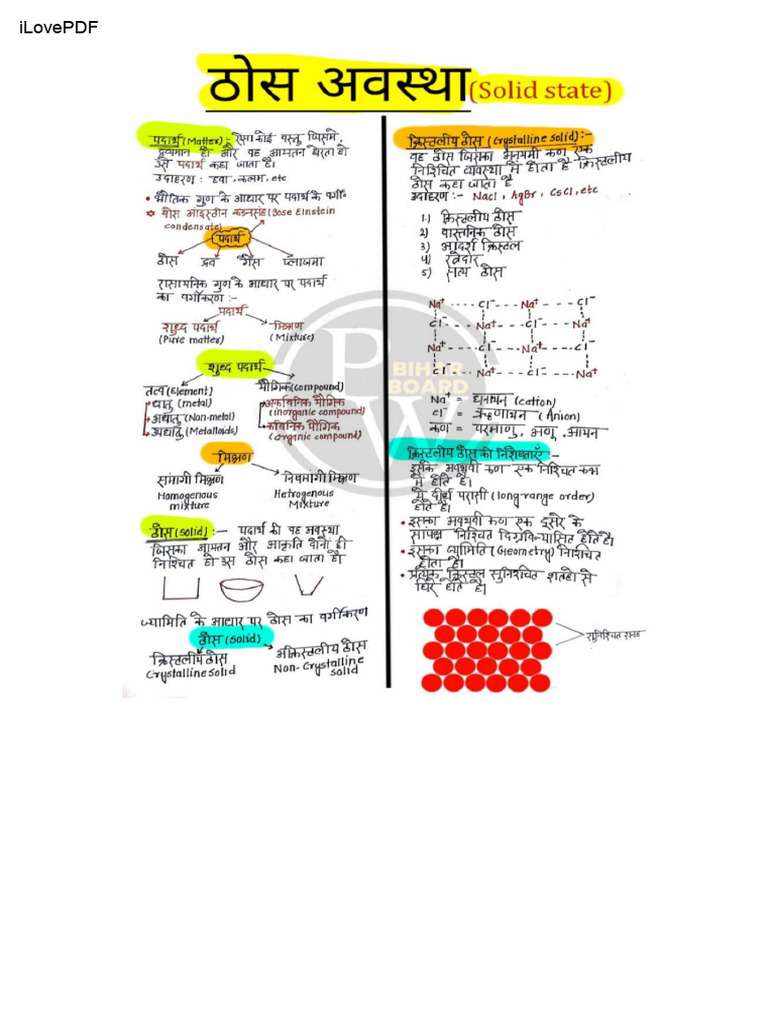 iLovePDF
ठोस अवस्था (Solid state)
पदार्थ (Matter) :- ऐसा कोई वस्तु जिसमे,
द्रव्यमान हो और वह आयतन घेरता हो
उसे पदार्थ कहा जाता है।
उदाहरण : हवा, कलम, etc
• भौतिक गुण के आधार पर पदार्थ के वर्गी॰
बोस आइंस्टीन कंडनसेट (Bose Einstein
condensate)
पदार्थ
ठोस द्रव गैस प्लाज्मा
रासायनिक गुण के आधार पर पदार्थ
का वर्गीकरण :-
पदार्थ
शुध्द पदार्थ मिश्रण
(Pure matter) (Mixture)
शुध्द पदार्थ
तत्व (Element) यौगिक (compound)
धातु (metal) अकार्बनिक यौगिक
(inorganic compound)
अधातु (Non-metal) कार्बनिक यौगिक
(Metalloids) (organic compound)
मिश्रण
समांगी मिश्रण विषमांगी मिश्रण
Homogenous Hetrogenous
mixture Mixture
ठोस (Solid) :- पदार्थ की वह अवस्था
जिसका आयतन और आकृति दोनों ही
निश्चित हो उसे ठोस कहा जाता है।
ज्यामिति के आधार पर ठोस का वर्गीकरण
ठोस (Solid)
क्रिस्टलीय ठोस अक्रिस्टलीय ठोस
Crystalline Solid Non-Crystalline
Solid
क्रिस्टलीय ठोस (Crystalline Solid) :-
वह ठोस जिसका अवयवी कण एक
निश्चित व्यवस्था में होता है क्रिस्टलीय
ठोस कहा जाता है
उदाहरण :- Nacl, AgBr, CsCl, etc
1.) क्रिस्टलीय ठोस
2) वास्तविक ठोस
3) आदर्श क्रिस्टल
4) रवेदार
5) सत्य ठोस
Na⁺ Cl⁻ Na⁺ Cl⁻
Cl⁻ Na⁺ Cl⁻ Na⁺
Na⁺ Cl⁻ Na⁺ Cl⁻
Cl⁻ Na⁺ Cl⁻ Na⁺
P W
BIHAR
BOARD
Na⁺ = धनायन (Cation)
Cl⁻ = ऋणायन (Anion)
कण = परमाणु, अणु, आयन
क्रिस्टलीय ठोस की विशेषताएँ :-
इसके अवयवी कण एक निश्चित क्रम
में होते है।
ये दीर्घ परासी (long range order)
होते है।
• इसका अवयवी कण एक दूसरे के
सापेक्ष निश्चित होते है।
• इसका ज्यामिति (Geometry) निश्चित
होता है।
• प्रत्येक क्रिस्टल सुनिश्चित सतहो से
घिरे होते है।
सुनिश्चित सतह